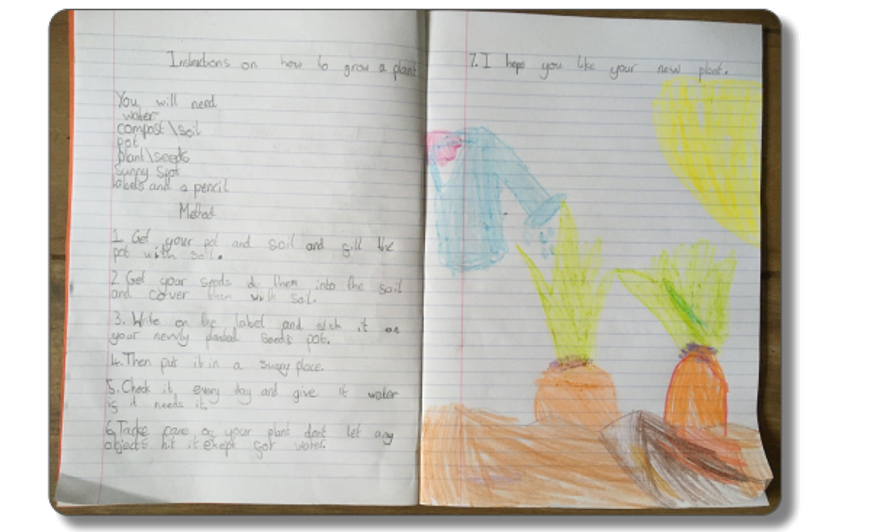 Instructions on how to grow a plant
You will need
water
compost \ soil
pot
plant \ seeds
sunny spot
labels and a pencil
Method
1. Get your pot and soil and fill the
pot with soil.
2. Get your seeds them into the soil
and cover them with soil.
3. Write on the label and stick it on
your newly planted seeds pot.
4. Then put it in a sunny place.
5. Check it every day and give it water
if it needs it.
6. Take care of your plant dont let any
objects hit it exept for water.
7. I hope you like your new plant.